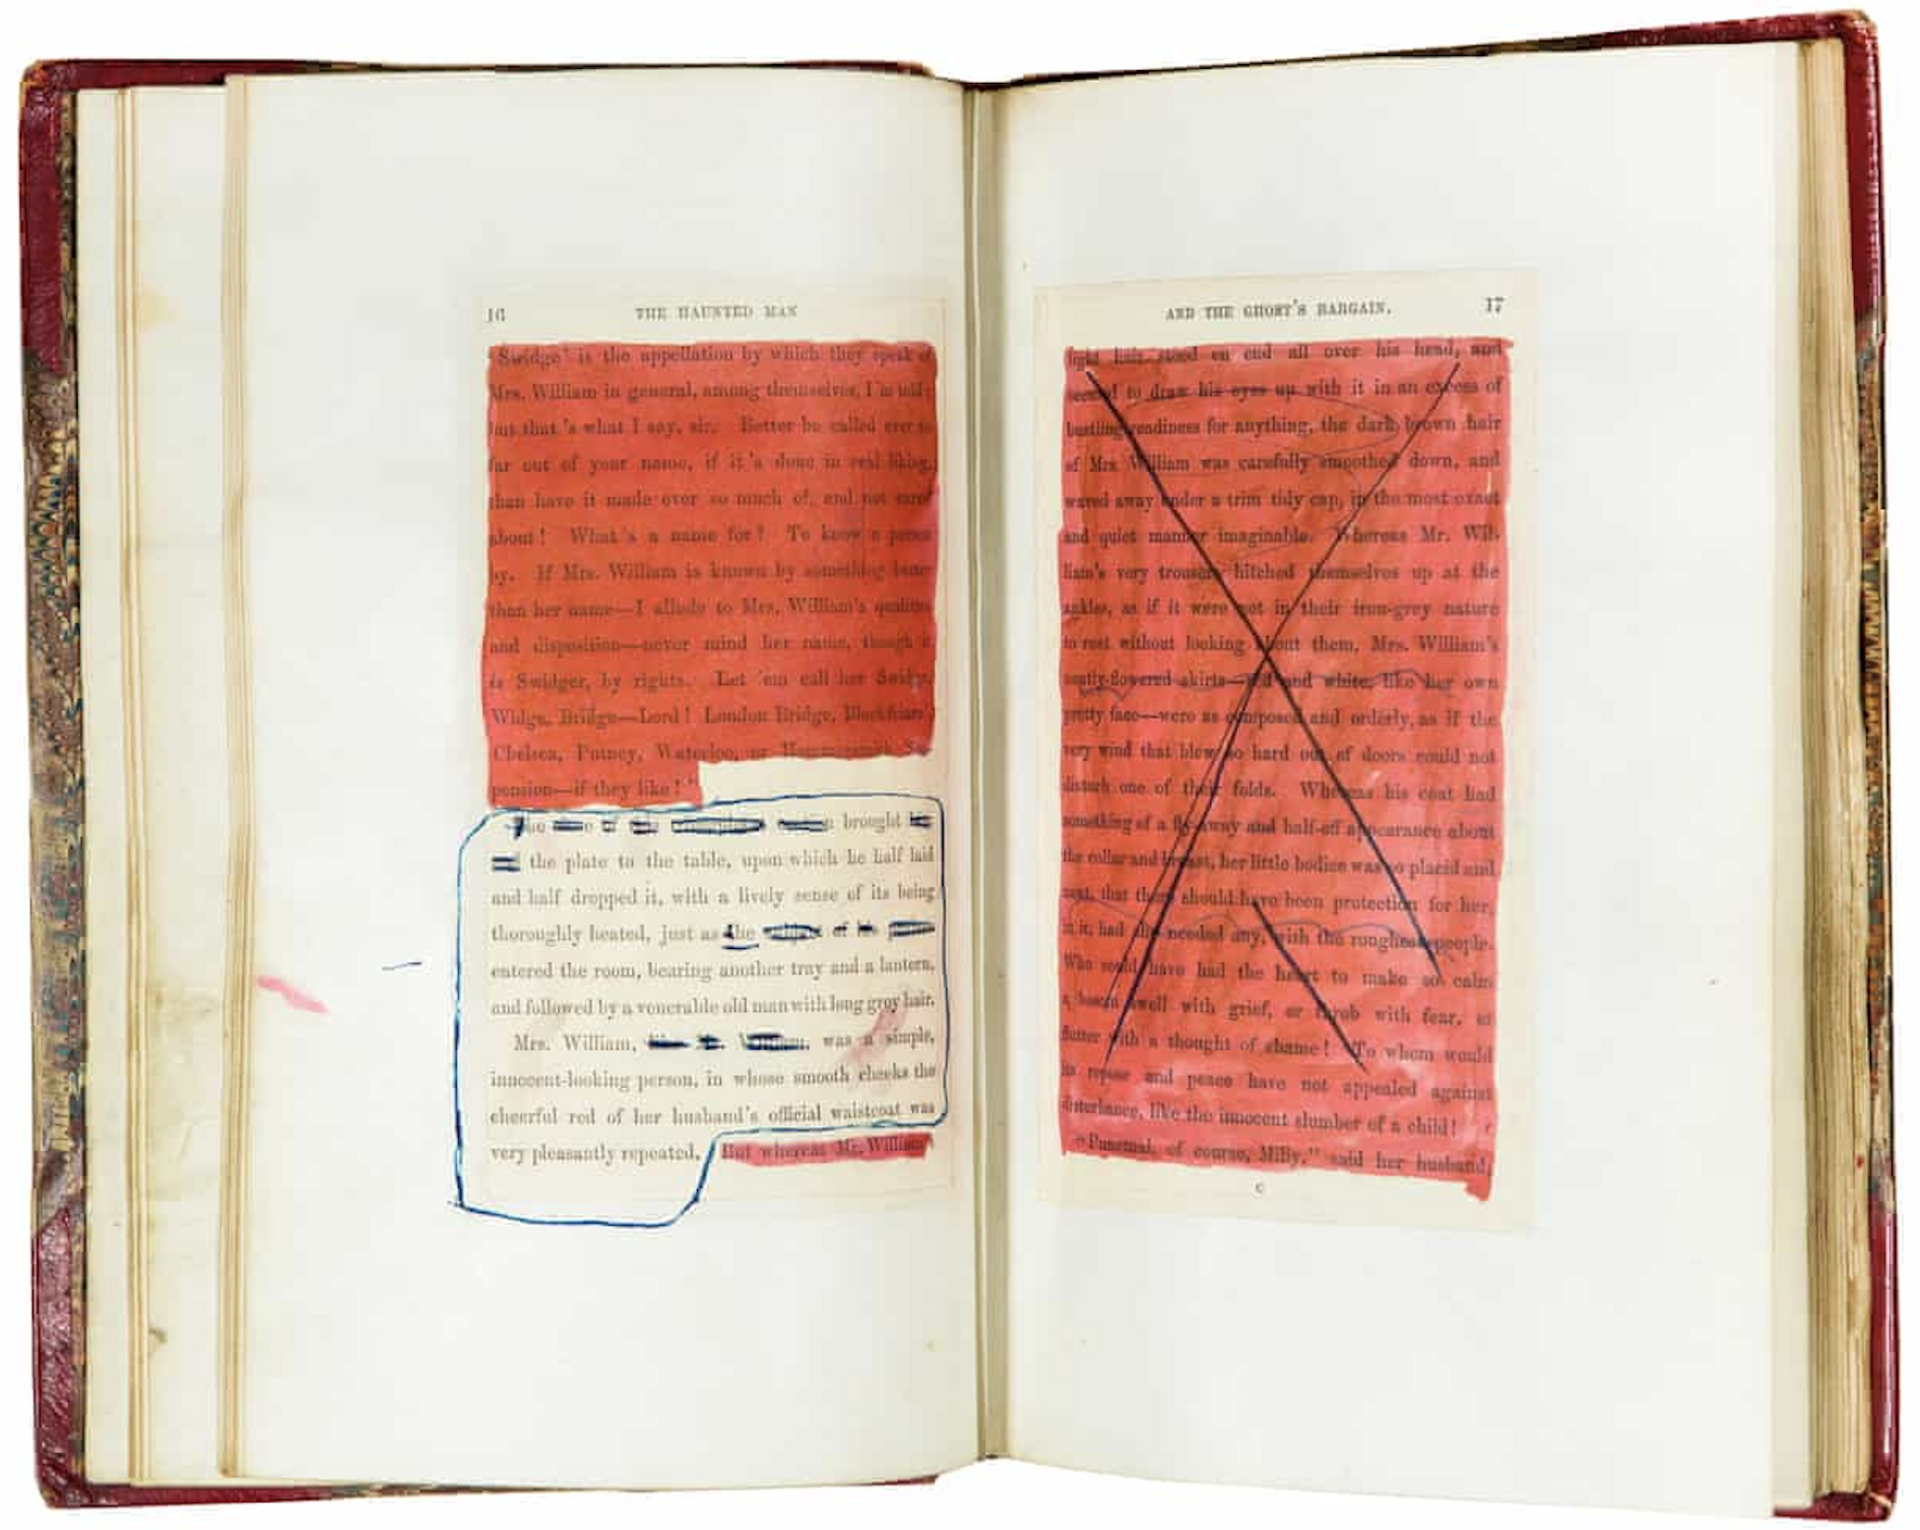 16
THE HAUNTED MAN
'Swidge' is the appellation by which they speak of
Mrs. William in general, among themselves, I'm told;
but that 's what I say, sir. Better be called ever so
far out of your name, if it 's done in real liking,
than have it made over so much of, and not cared
about! What 's a name for? To know a person
by. If Mrs. William is known by something better
than her name—I allude to Mrs. William's qualities
and disposition—never mind her name, though it
is Swidger, by rights. Let 'em call her Swidge,
Widge, Bridge—Lord! London Bridge, Blackfriars,
Chelsea, Putney, Waterloo, or Hammersmith Sus-
pension—if they like!"
brought
the plate to the table, upon which he half laid
and half dropped it, with a lively sense of its being
thoroughly heated, just as the of
entered the room, bearing another tray and a lantern,
and followed by a venerable old man with long grey hair.
Mrs. William, was a simple,
innocent-looking person, in whose smooth cheeks the
cheerful red of her husband's official waistcoat was
very pleasantly repeated. But whereas Mr. William's
AND THE GHOST'S BARGAIN.
17
light hair stood on end all over his head, and
seemed to draw his eyes up with it in an excess of
bustling readiness for anything, the dark brown hair
of Mrs. William was carefully smoothed down, and
waved away under a trim tidy cap, in the most exact
and quiet manner imaginable. Whereas Mr. Wil-
liam's very trousers hitched themselves up at the
ankles, as if it were not in their iron-grey nature
to rest without looking about them, Mrs. William's
neatly-flowered skirts—red and white, like her own
pretty face—were as composed and orderly, as if the
very wind that blew so hard out of doors could not
disturb one of their folds. Whereas his coat had
something of a fly-away and half-off appearance about
the collar and breast, her little bodice was so placid and
neat, that there should have been protection for her,
in it, had she needed any, with the roughest people.
Who could have had the heart to make so calm
a bosom swell with grief, or throb with fear, or
flutter with a thought of shame! To whom would
its repose and peace have not appealed against
disturbance, like the innocent slumber of a child!
"Punctual, of course, Milly," said her husband,
C